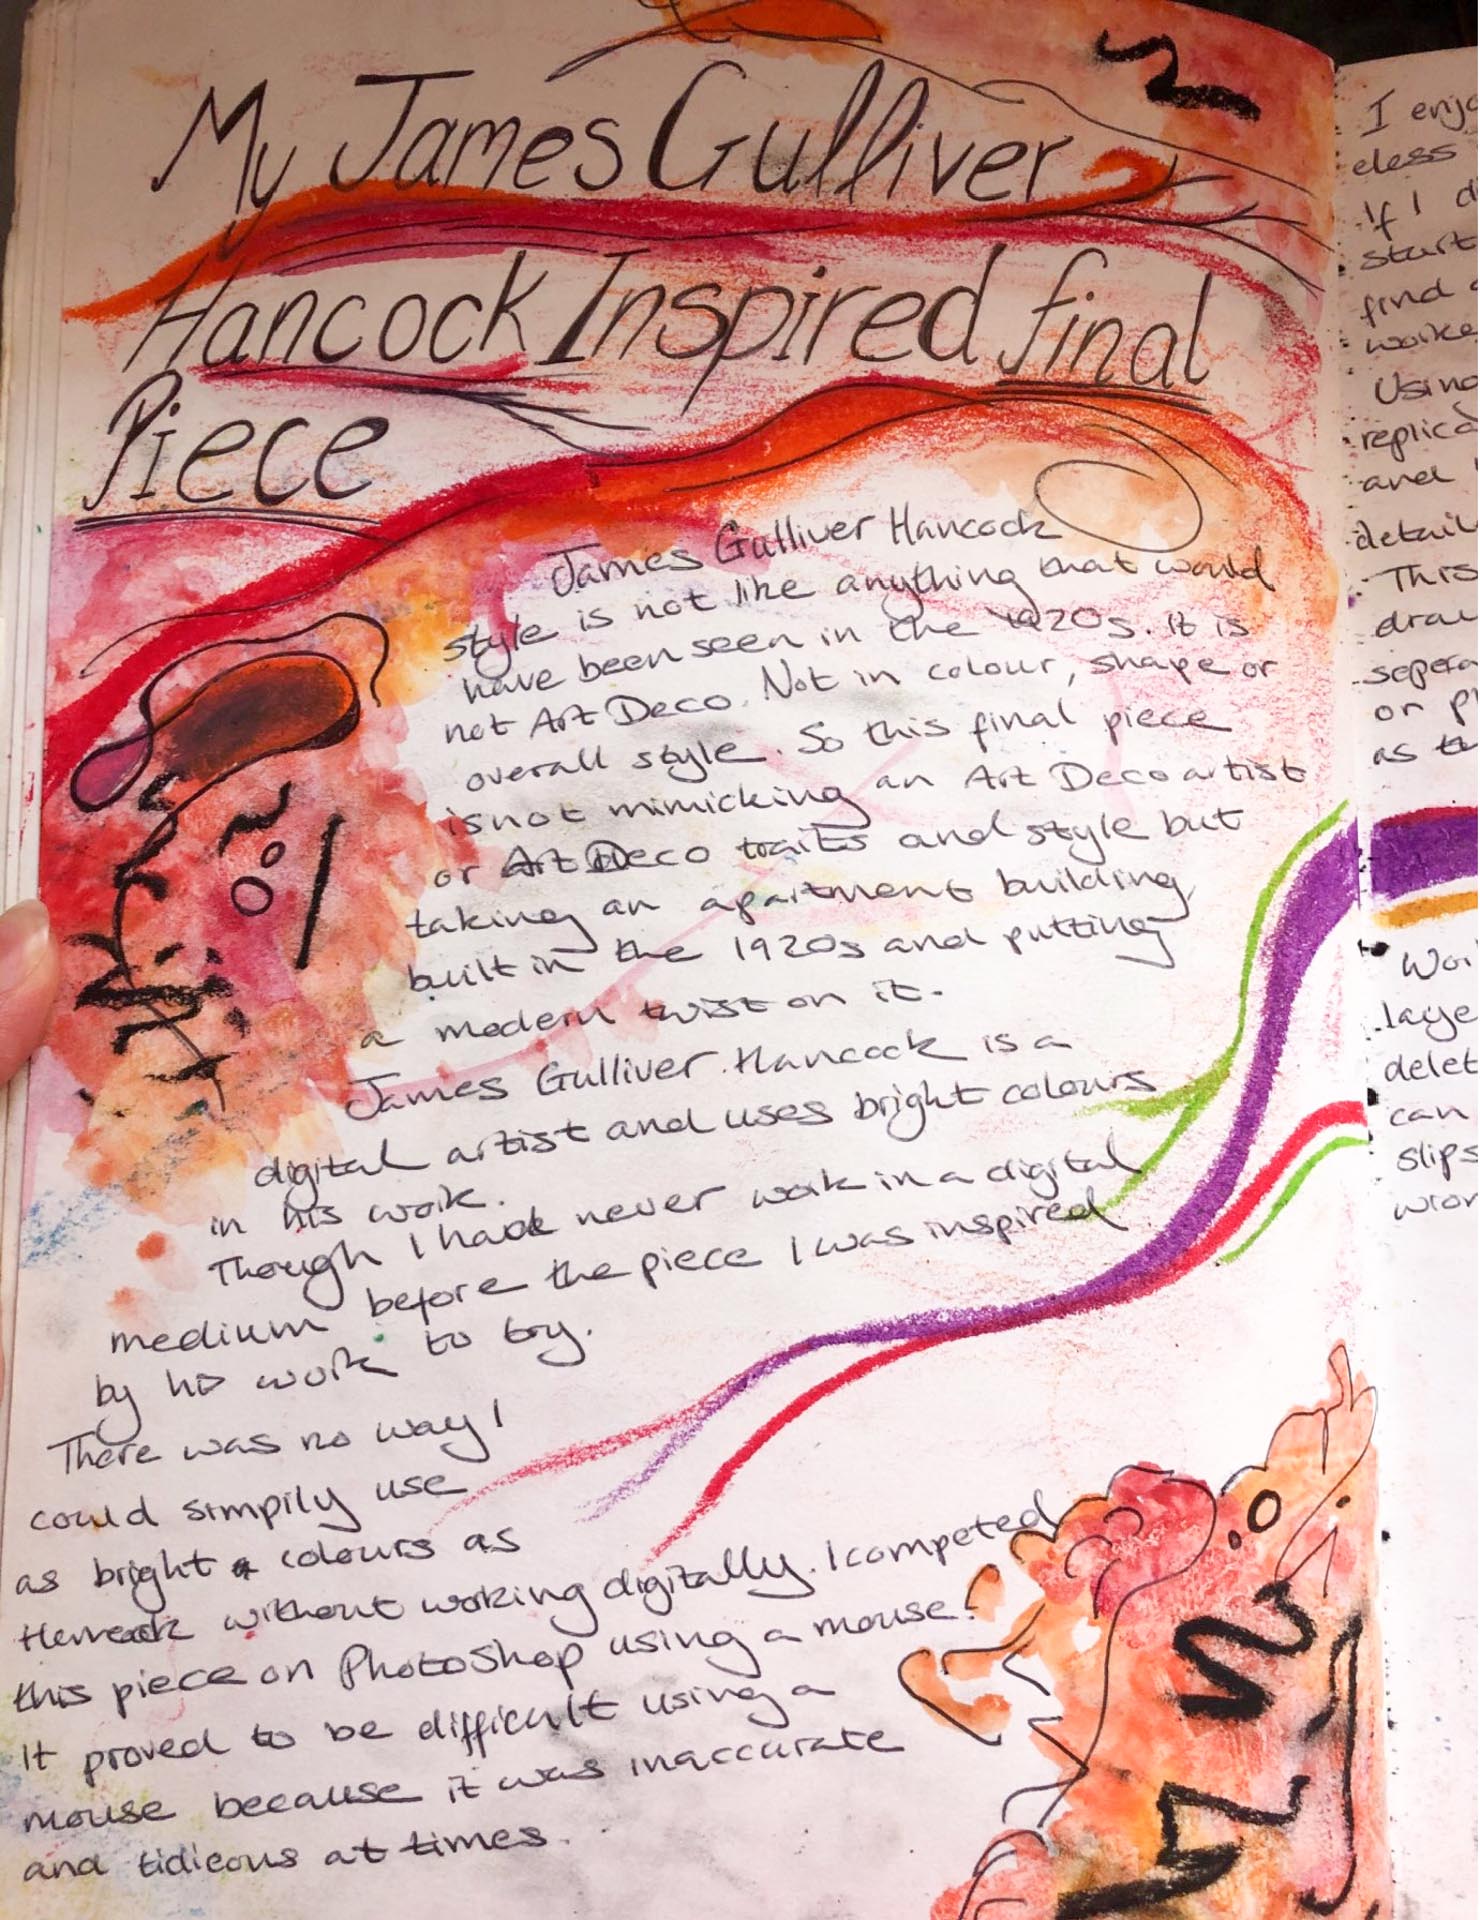 My James Gulliver
Hancock Inspired final
Piece
James Gulliver Hancock
style is not like anything that would
have been seen in the 1920s. It is
not Art Deco. Not in colour, shape or
overall style. So this final piece
is not mimicking an Art Deco artist
or Art Deco traits and style but
taking an apartment building,
built in the 1920s and putting
a modern twist on it.
James Gulliver Hancock is a
digital artist and uses bright colours
in his work.
Though I had never work in a digital
medium before the piece I was inspired
by his work to try.
There was no way I
could simpily use
as bright colours as
without working digitally. I competed
this piece on PhotoShop using a mouse.
It proved to be difficult using a
mouse because it was inaccurate
and tidieous at times.
I enjo
eless
If I d
start
find
worke
Using
replica
and
detail
This
draw
sepera
or p
as th
Wor
laye
delet
can
slips
wron